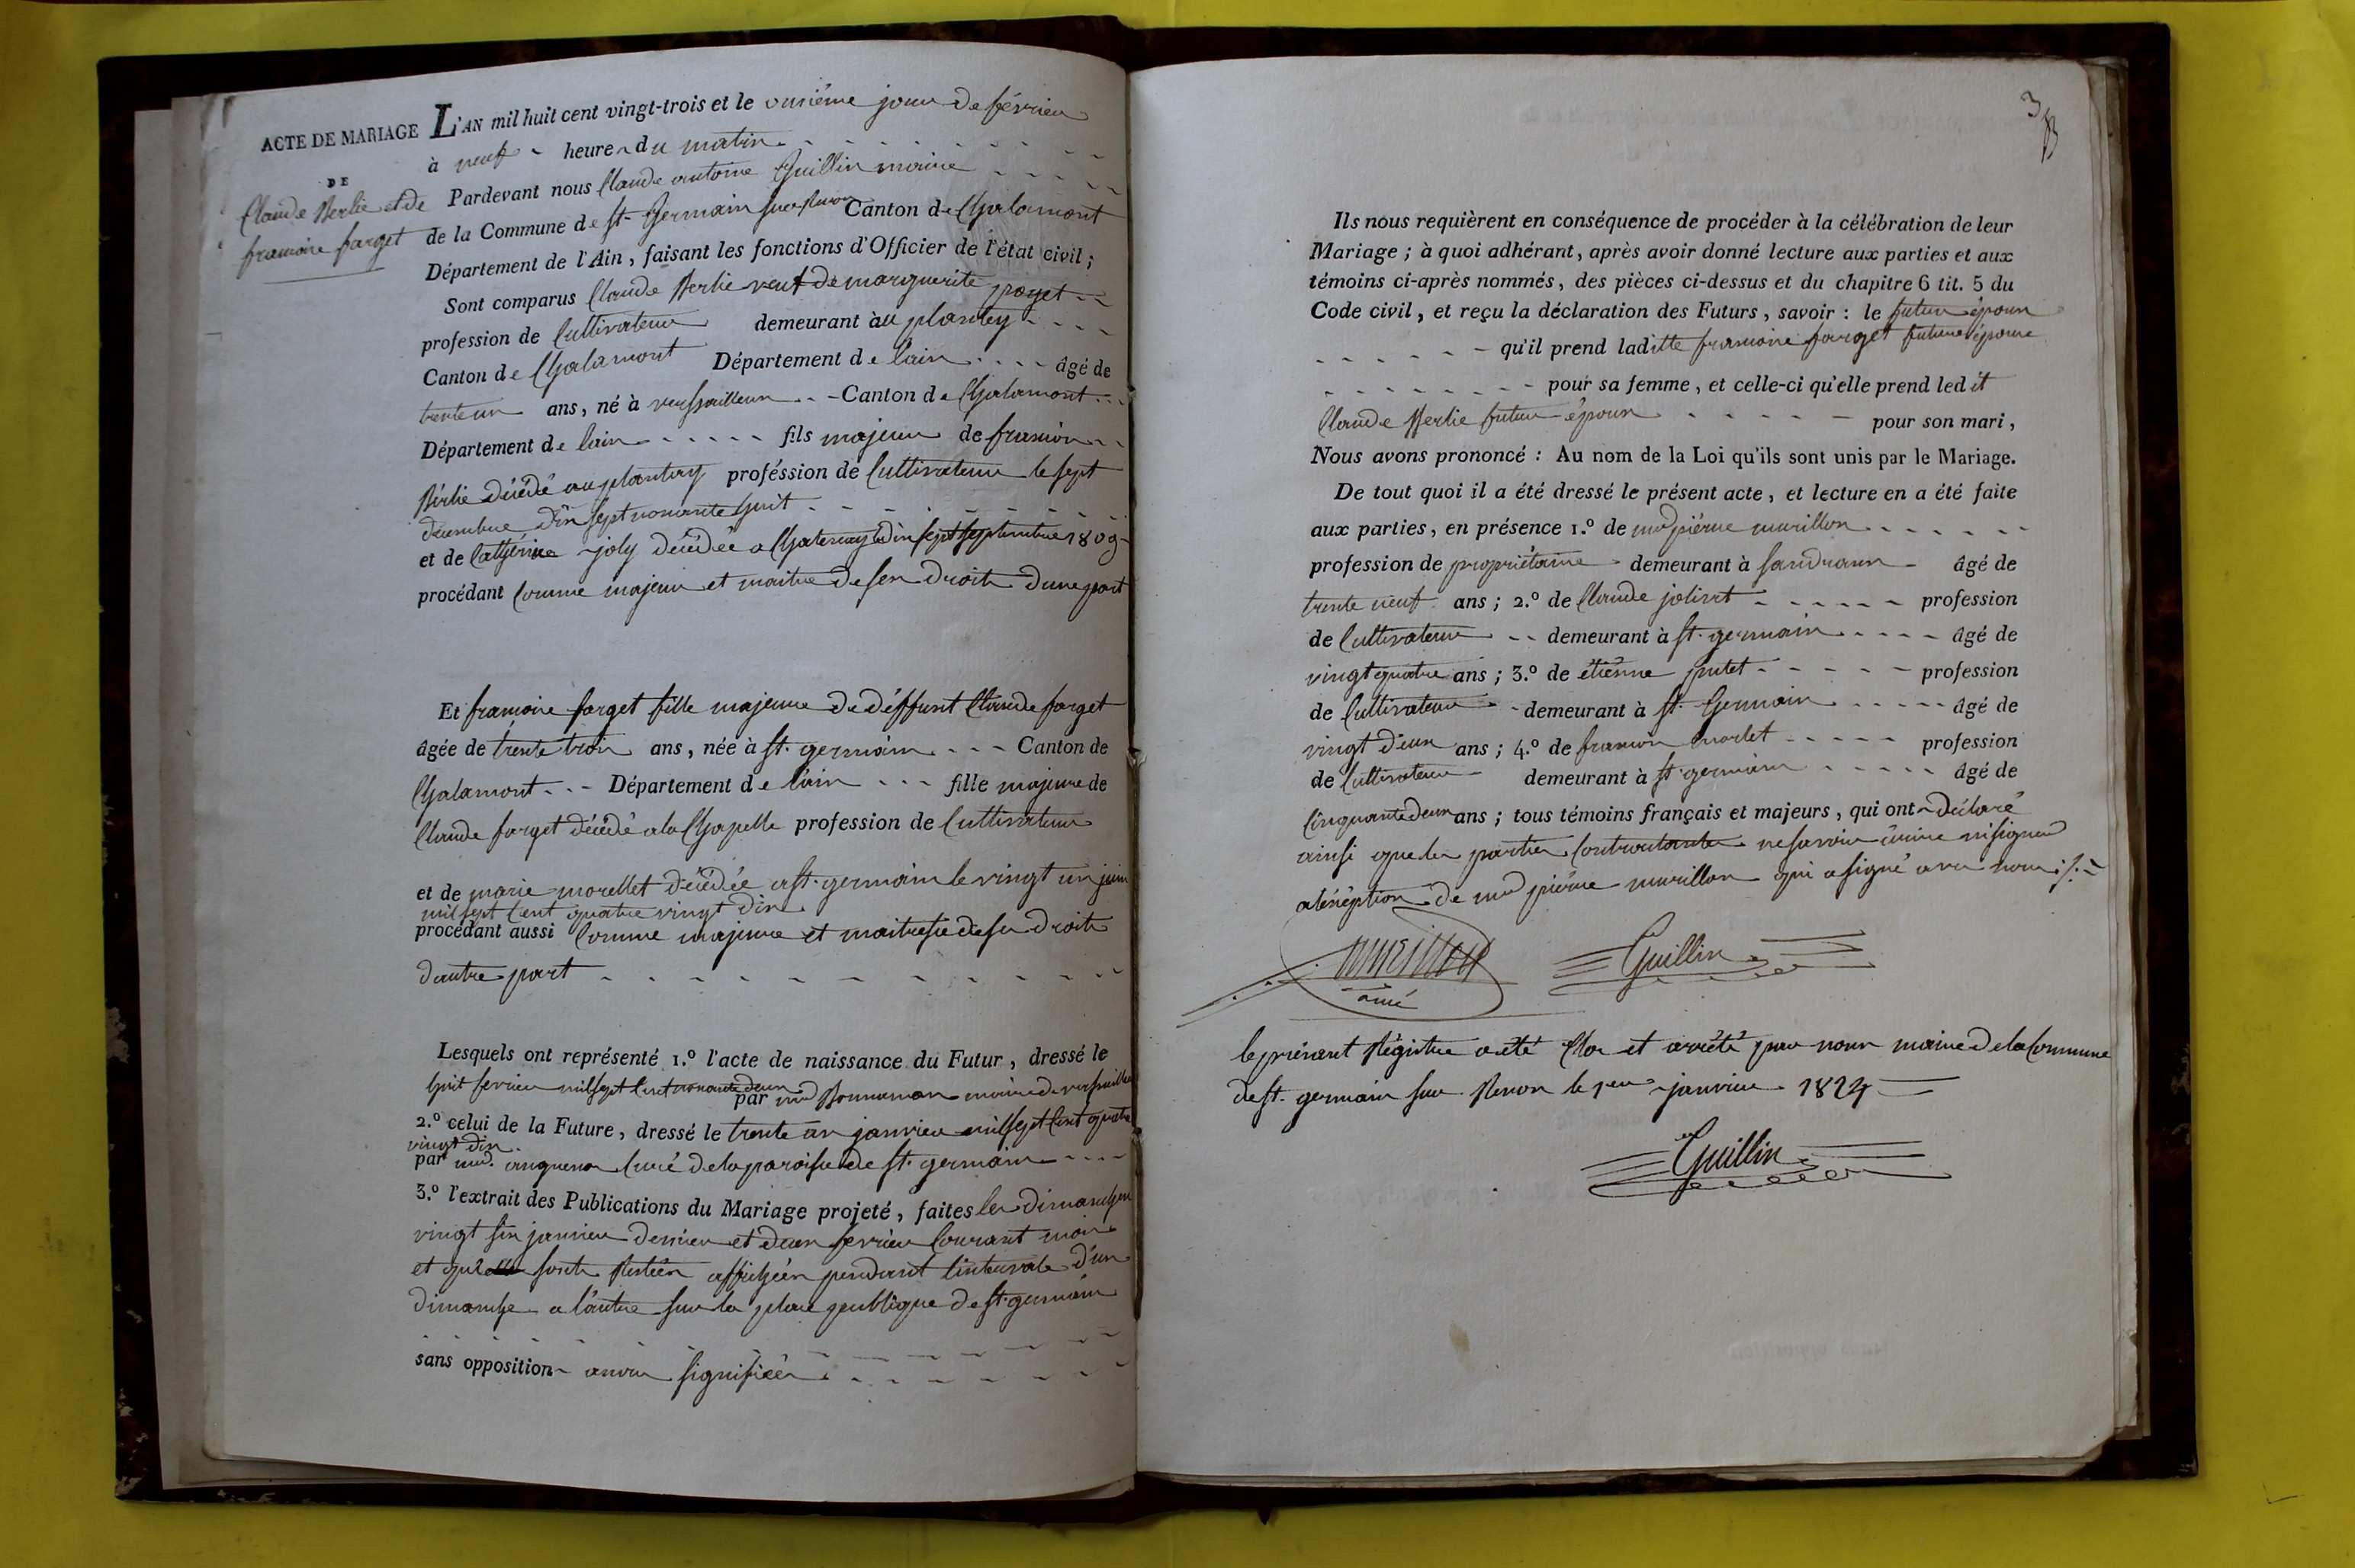 ACTE DE MARIAGE
DE
Claude Berlie et de
francoise farget
L'AN mil huit cent vingt-trois et le onzième jour de février
à neuf heures du matin
Pardevant nous Claude antoine Guillin maire
de la Commune de st. Germain sur renon Canton de Chalamont
Département de l'Ain, faisant les fonctions d'Officier de l'état civil;
Sont comparus Claude Berlie veuf de marguerite poget
profession de Cultivateur demeurant au plantey
Canton de Chalamont Département de lain âgé de
trente un ans, né à versailleux Canton de Chalamont
Département de lain fils majeur de francois
Berlie décédé au plantay profession de Cultivateur le sept
décembre dix sept nonante huit
et de Catherine joly décédée a Chatenay le dix sept septembre 1809
procédant Comme majeur et maitre de ses droits dune part
Et francoise farget fille majeure de déffunt Claude farget
âgée de trente trois ans, née à st. germain Canton de
Chalamont Département de lain fille majeure de
Claude farget décédé a la Chapelle profession de Cultivateur
et de marie morellet décédée a st. germain le vingt un juin
mil sept Cent quatre vingt dix
procédant aussi Comme majeure et maitresse de ses droits
dautre part
Lesquels ont représenté 1.º l'acte de naissance du Futur, dressé le
huit fevrier mil sept Cent nonante deux par mr maire de versailleux
2.º celui de la Future, dressé le trente un janvier mil sept Cent quatre
vingt dix
par mr. Curé de la paroisse de st. germain
3.º l'extrait des Publications du Mariage projeté, faites les dimanches
vingt six janvier dernier et deux fevrier Courant mois
et quelles sonts restées affichées pendant lintervale d'un
dimanche a lautre sur la place publique de st. germain
sans opposition aucune signifiées
3
Ils nous requièrent en conséquence de procéder à la célébration de leur
Mariage; à quoi adhérant, après avoir donné lecture aux parties et aux
témoins ci-après nommés, des pièces ci-dessus et du chapitre 6 tit. 5 du
Code civil, et reçu la déclaration des Futurs, savoir: le futur époux
qu'il prend laditte francoise farget future épouse
pour sa femme, et celle-ci qu'elle prend ledit
Claude Berlie futur époux pour son mari,
Nous avons prononcé: Au nom de la Loi qu'ils sont unis par le Mariage.
De tout quoi il a été dressé le présent acte, et lecture en a été faite
aux parties, en présence 1.º de mr pierre murillon
profession de propriétaire demeurant à Sandrans âgé de
trente neuf ans; 2.º de Claude jolivet profession
de Cultivateur demeurant à st. germain âgé de
vingt quatre ans; 3.º de étienne putet profession
de Cultivateur demeurant à st. Germain âgé de
vingt deux ans; 4.º de francois morlet profession
de Cultivateur demeurant à st. germain âgé de
Cinquante deux ans; tous témoins français et majeurs, qui ont déclaré
ainsi que les parties Contractantes ne savoir écrire ni signer
a léxéption de mr pierre murillon qui a signé avec nous
murillon
ainé
Guillin
le présent Régistre a été Clos et arrêté par nous maire de la Commune
de st. germain sur Renon le 1er janvier 1824
Guillin